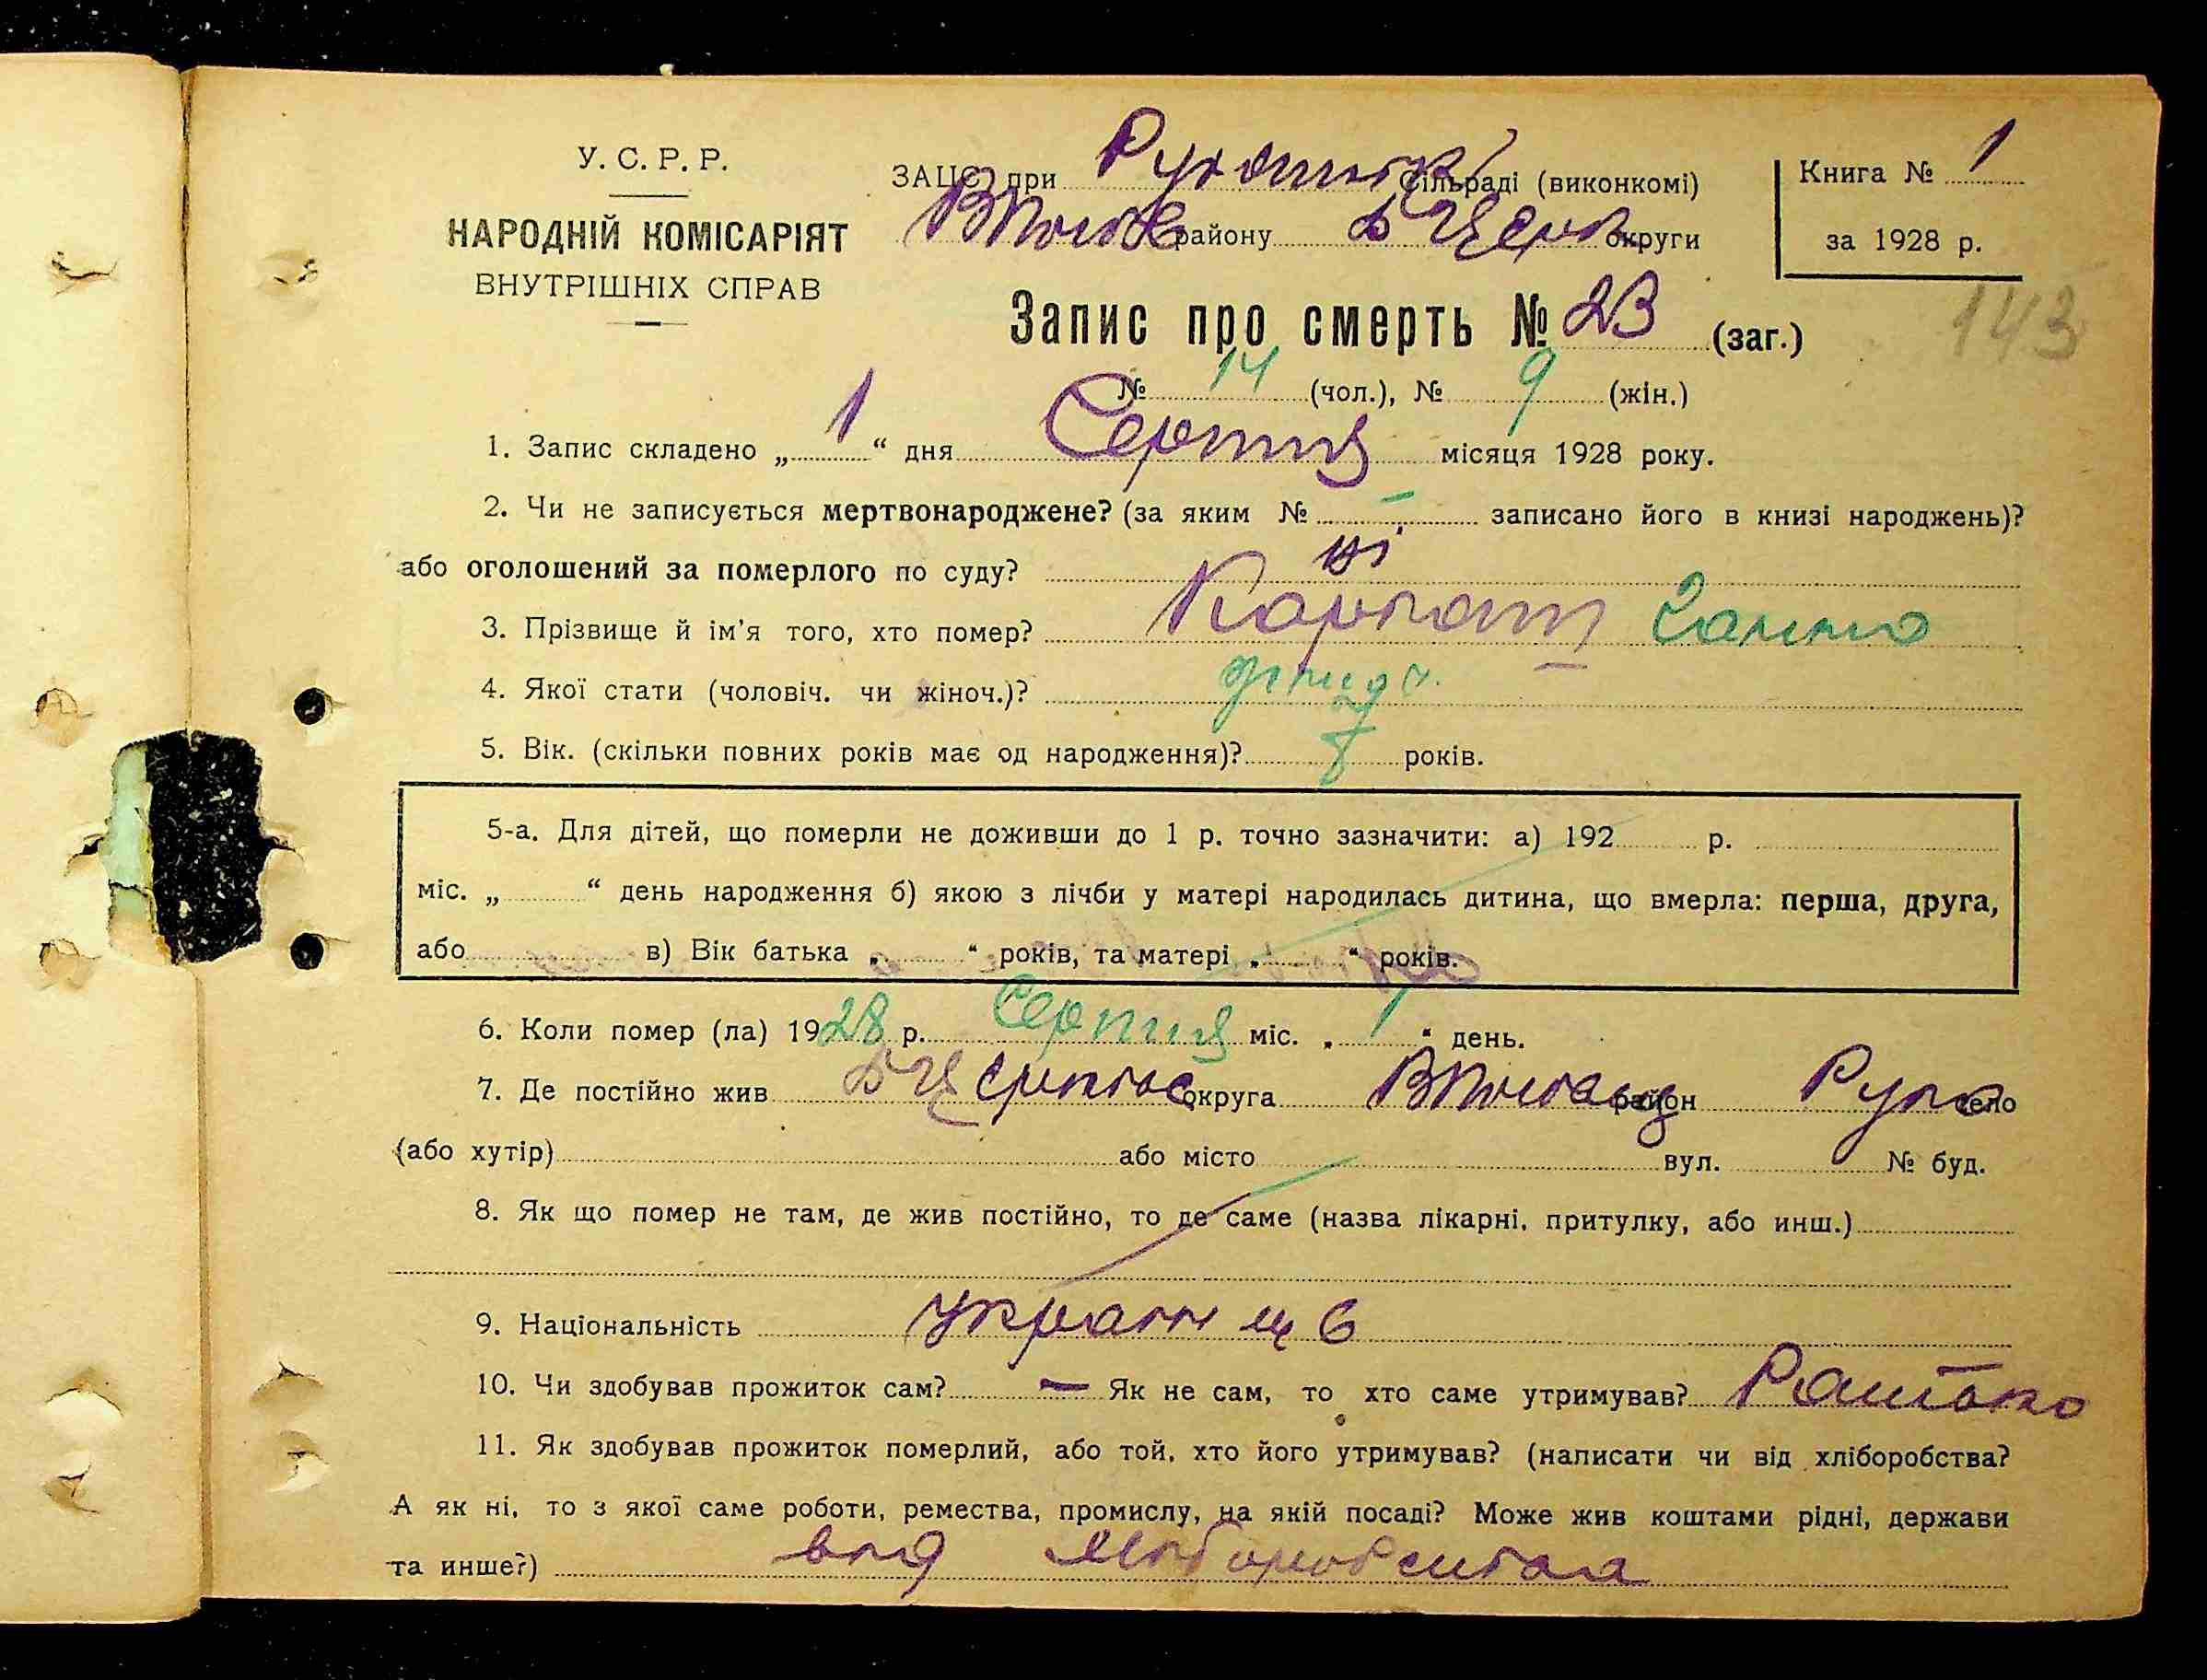 У. С. Р. Р.
НАРОДНІЙ КОМІСАРІЯТ
ВНУТРІШНІХ СПРАВ
ЗАЦС при сільраді (виконкомі)
району Б Церк округи
Книга № 1
за 1928 р.
143
Запис про смерть № 23 (заг.)
№ 14 (чол.), № 9 (жін.)
1. Запис складено „ 1 “ дня Серпня місяця 1928 року.
2. Чи не записується мертвонароджене? (за яким № – записано його в книзі народжень)?
або оголошений за померлого по суду? ні
3. Прізвище й ім'я того, хто помер? Ганна
4. Якої стати (чоловіч. чи жіноч.)?
5. Вік. (скільки повних років має од народження)? років.
5-а. Для дітей, що померли не доживши до 1 р. точно зазначити: а) 192 р.
міс. „ “ день народження б) якою з лічби у матері народилась дитина, що вмерла: перша, друга,
або в) Вік батька „ “ років, та матері „ “ років.
6. Коли помер (ла) 1928 р. Серпня міс. „ 1 “ день.
7. Де постійно жив округа район село
(або хутір) або місто вул. № буд.
8. Як що помер не там, де жив постійно, то де саме (назва лікарні, притулку, або инш.)
9. Національність
10. Чи здобував прожиток сам? — Як не сам, то хто саме утримував?
11. Як здобував прожиток померлий, або той, хто його утримував? (написати чи від хліборобства?
А як ні, то з якої саме роботи, ремества, промислу, на якій посаді? Може жив коштами рідні, держави
та инше?) від хліборобства